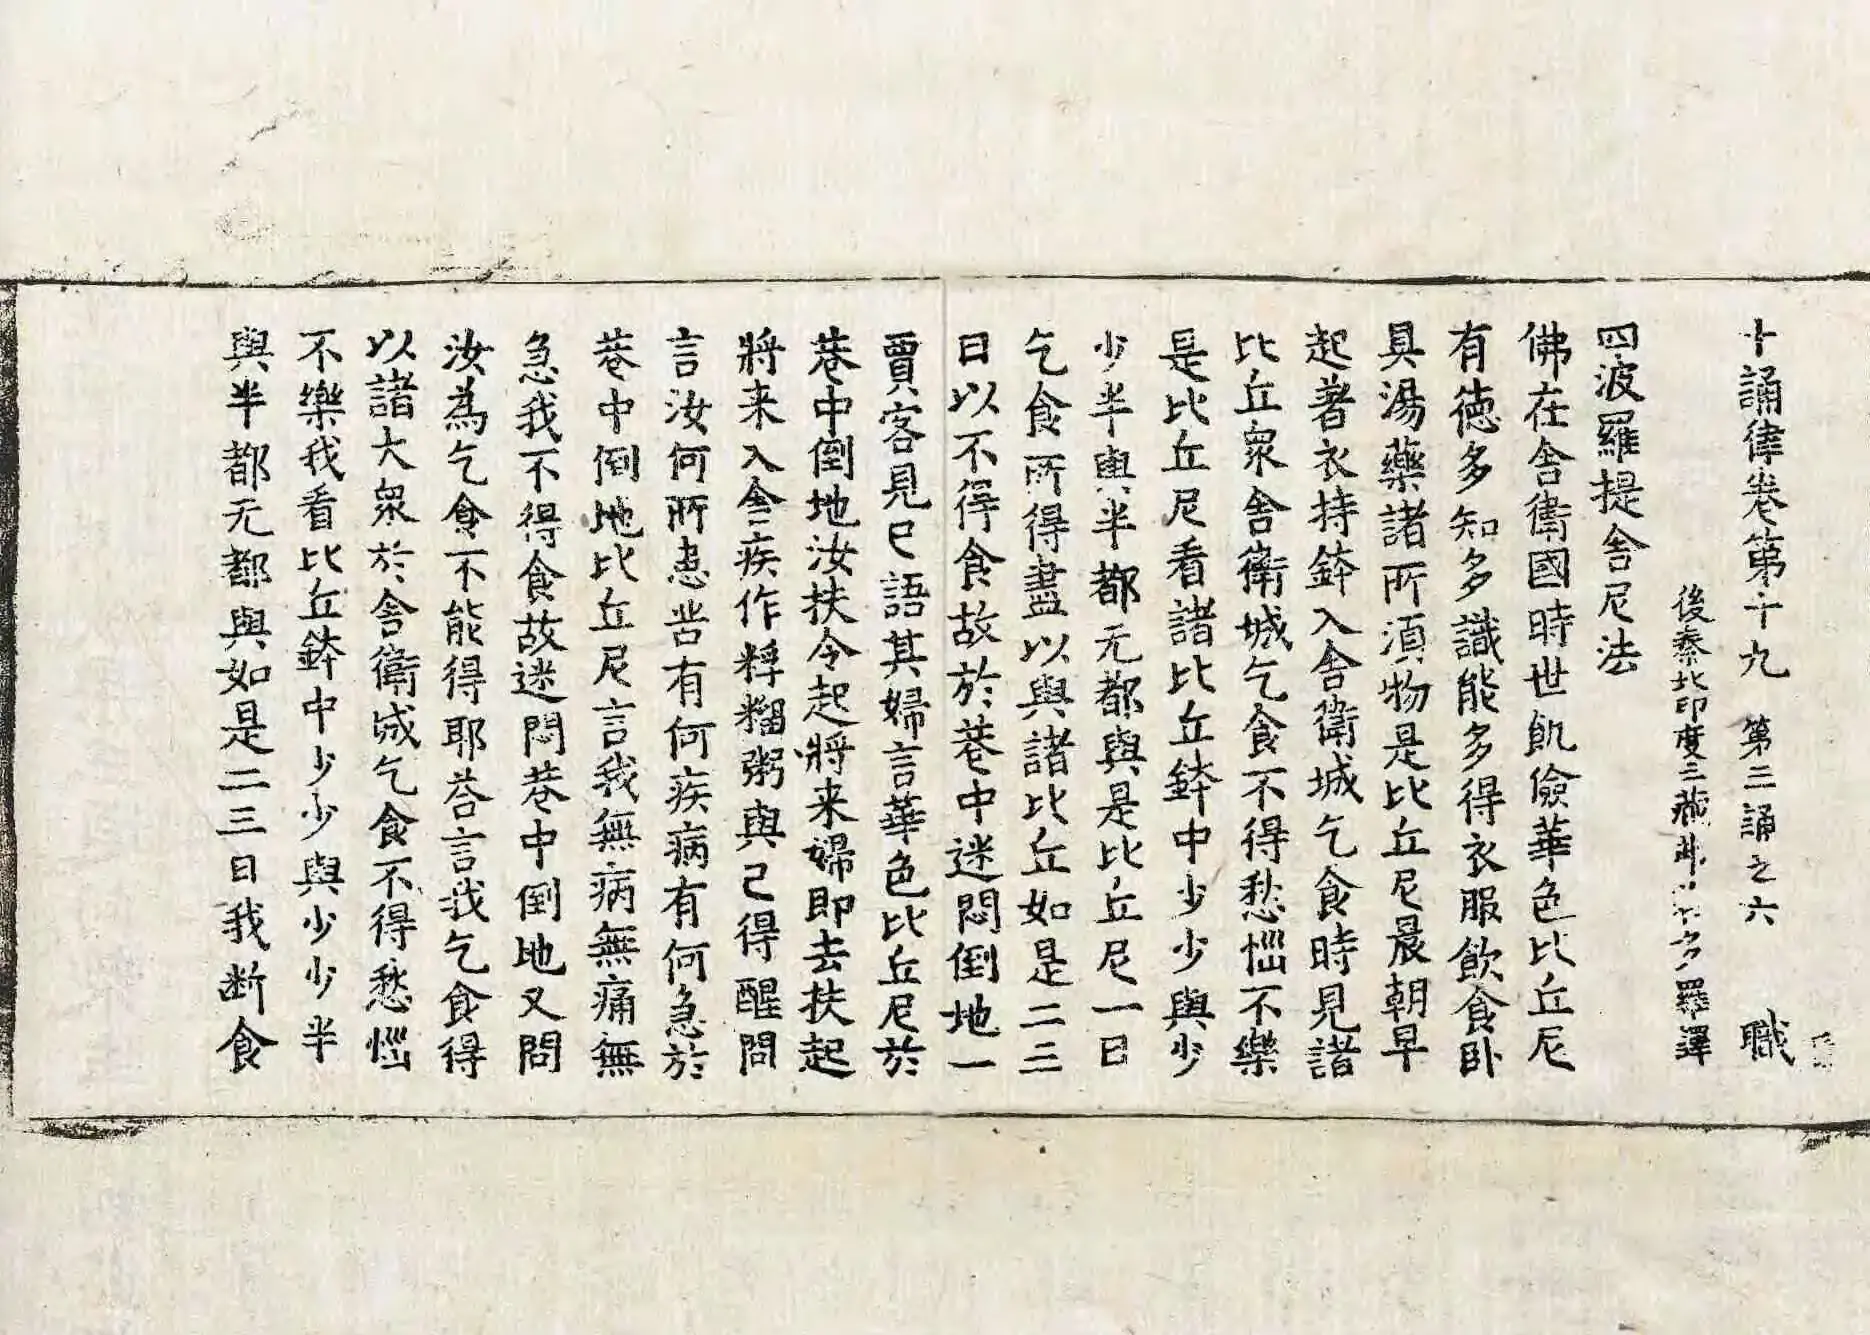 十誦律卷第十九　第三誦之六　職
後秦北印度三藏弗多羅譯
四波羅提舍尼法
佛在舍衛國時世飢儉華色比丘尼
有德多知多識能多得衣服飲食卧
具湯藥諸所須物是比丘尼晨朝早
起著衣持鉢入舍衛城乞食時見諸
比丘衆舍衛城乞食不得愁惱不樂
是比丘尼看諸比丘鉢中少少與少
少半與半都无都與是比丘尼一日
乞食所得盡以與諸比丘如是二三
日以不得食故於巷中迷悶倒地一
賈客見已語其婦言華色比丘尼於
巷中倒地汝扶令起將来婦即去扶起
將来入舍疾作粰𥻦粥與已得醒問
言汝何所患苦有何疾病有何急於
巷中倒地比丘尼言我無病無痛無
急我不得食故迷悶巷中倒地又問
汝為乞食不能得耶荅言我乞食得
以諸大衆於舍衛城乞食不得愁惱
不樂我看比丘鉢中少少與少少半
與半都无都與如是二三日我断食